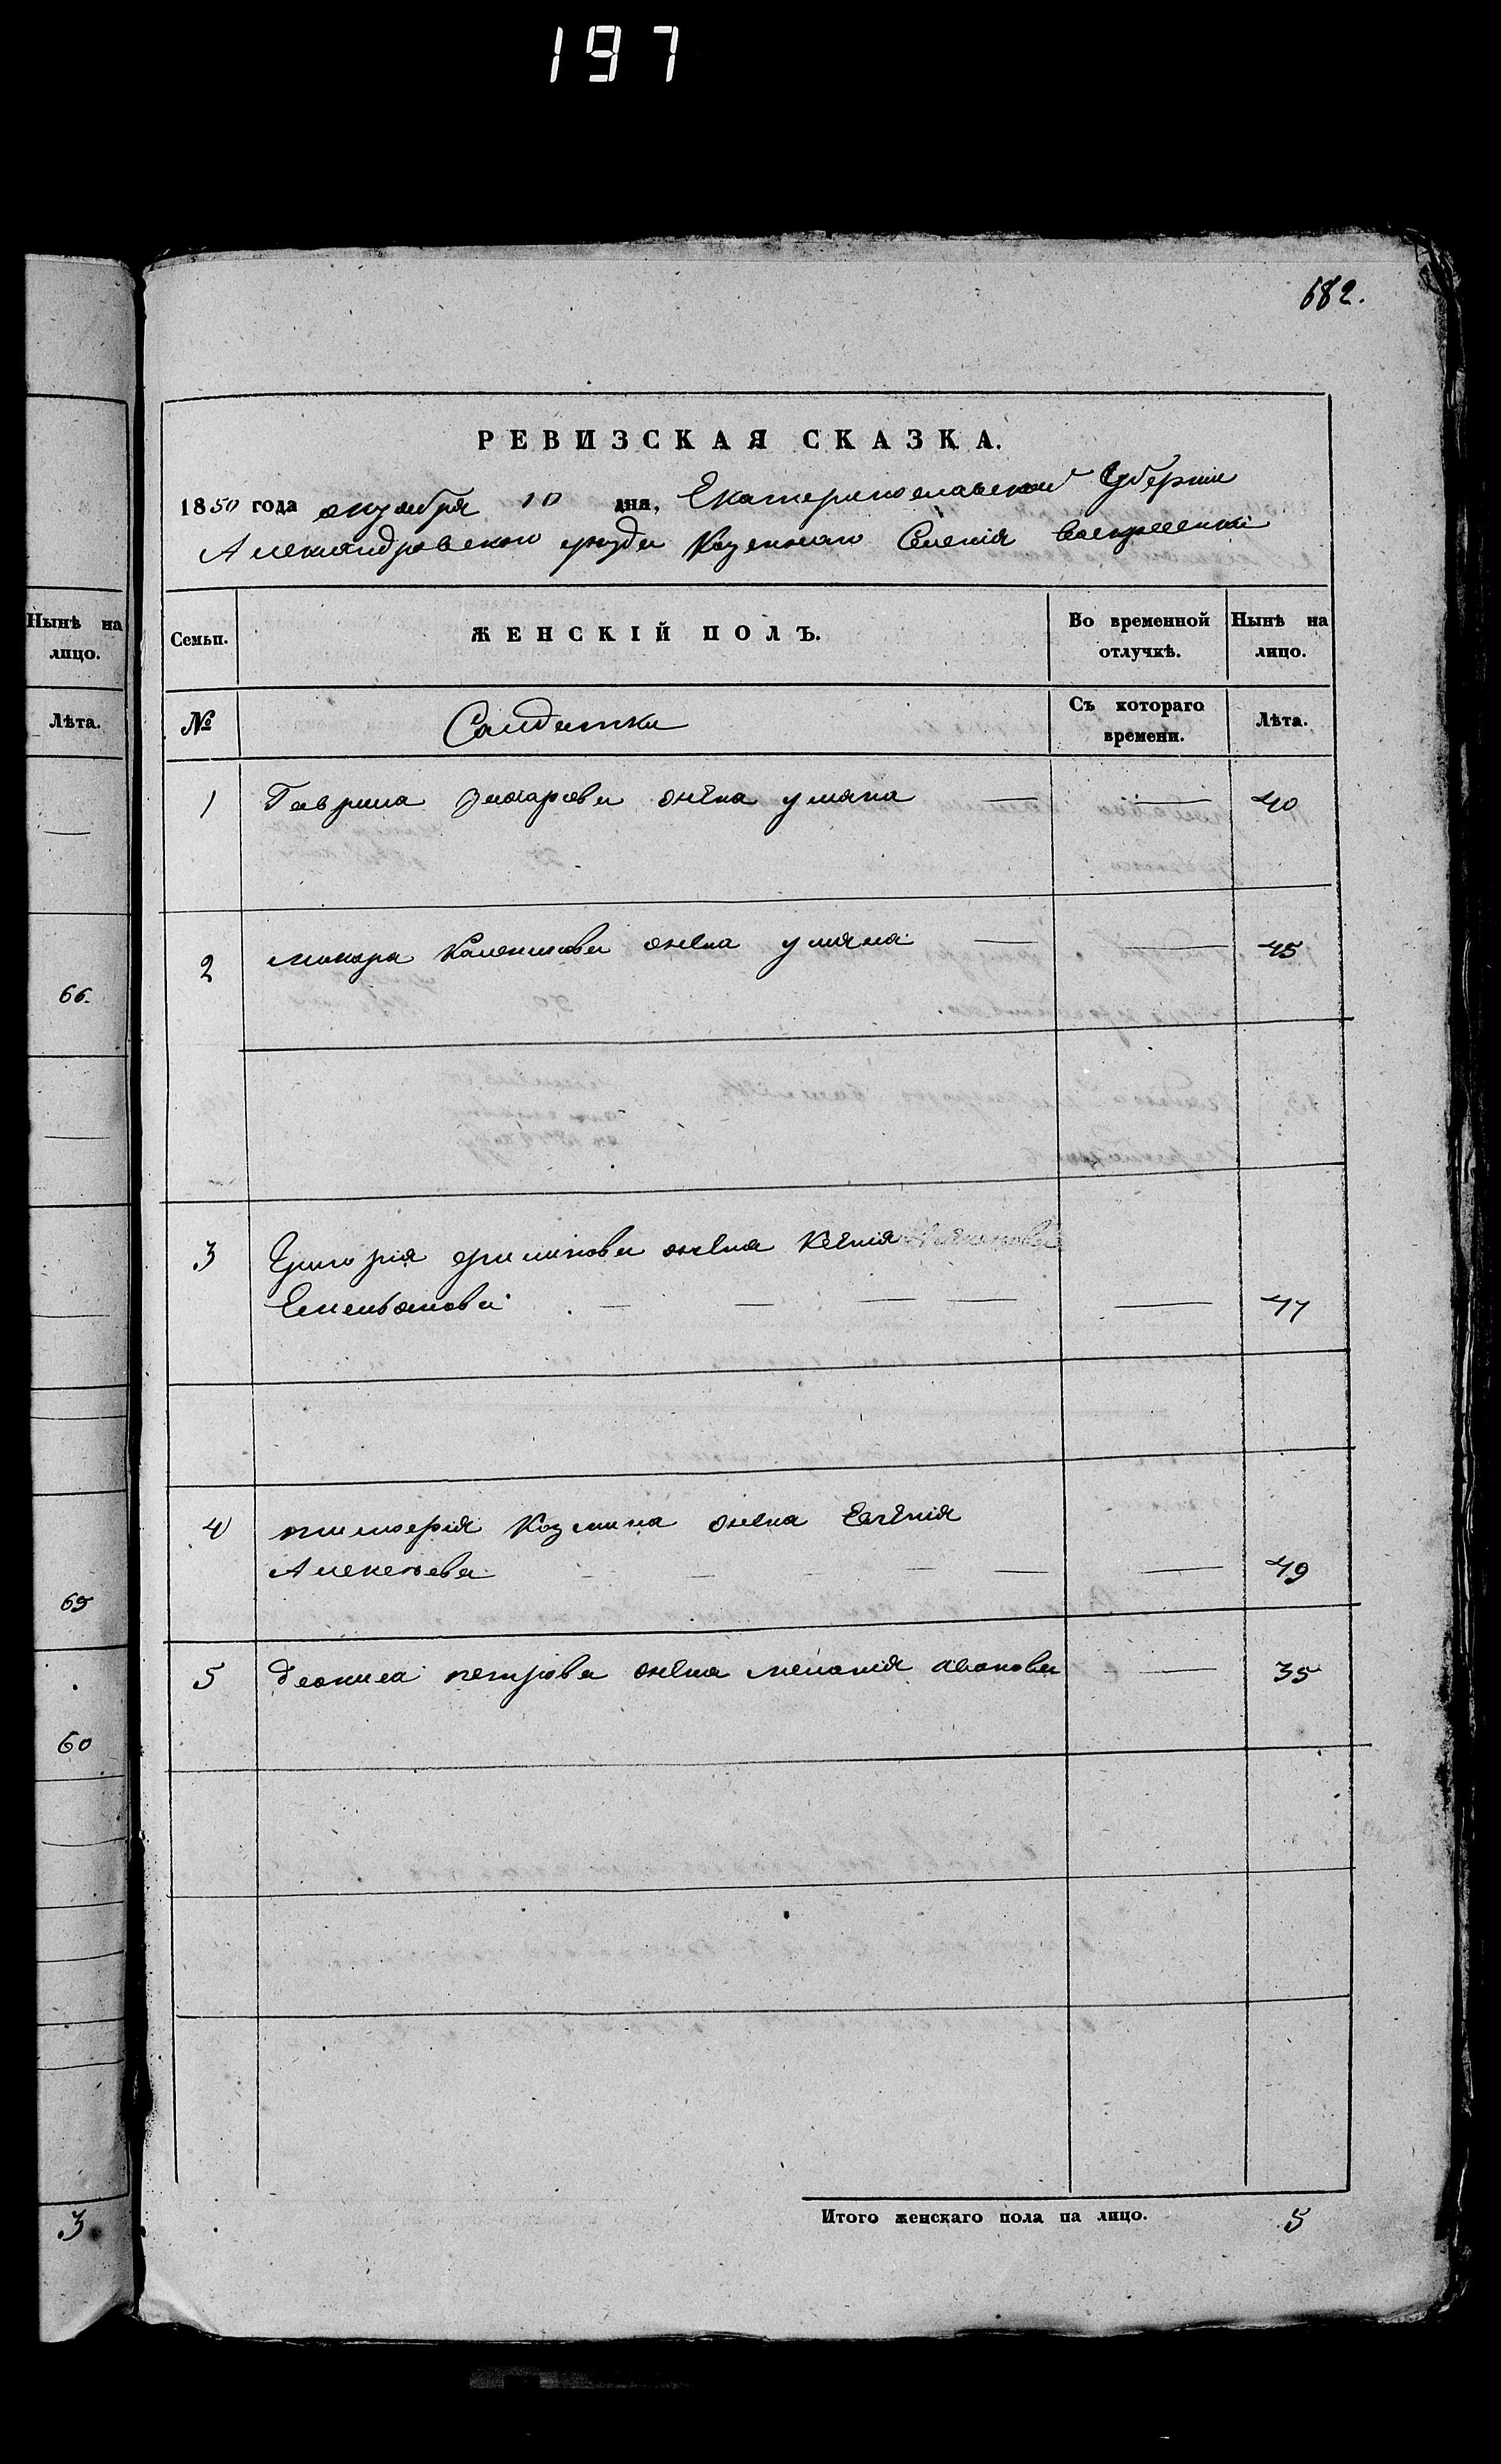 197
682.
РЕВИЗСКАЯ СКАЗКА.
1850 года октября 10 дня, Екатеринославской Губернии
Александровского уезда Казенного Селения Воскресенки
Нынѣ на
лицо.
Семьи.
ЖЕНСКІЙ ПОЛЪ.
Во временной
отлучкѣ.
Нынѣ на
лицо.
Лѣта.
№
Салдатки
Съ котораго
времени.
Лѣта.
1 Гаврила Захарова жена уляна — — 40
2 макара жена уляна — — 45
66.
3 Григорія жена
Емельянова — — — — — 47
4 тимофея Козмина жена Евгенія
Алексеева — — — — — — 49
65
5 данила петрова жена меланія — 35
60
3
Итого женскаго пола на лицо. 5